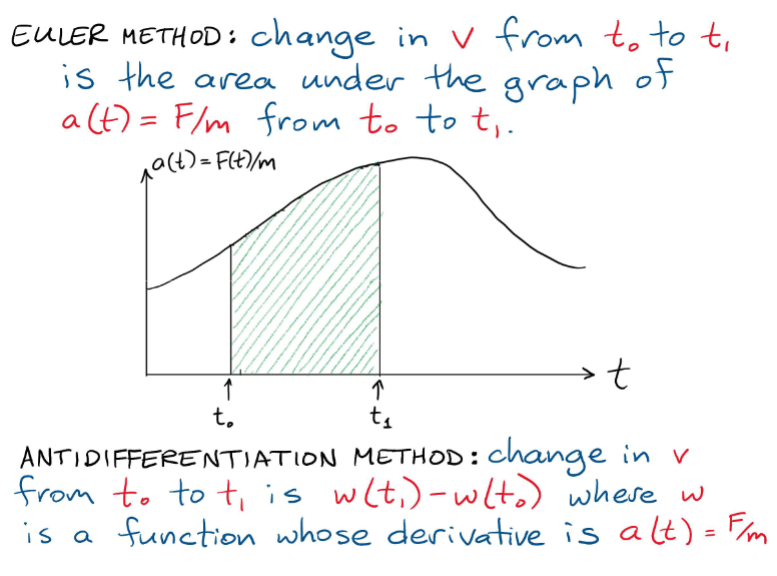 EULER METHOD: change in v from t₀ to t₁
is the area under the graph of
a(t) = F/m from t₀ to t₁.
a(t) = F(t)/m
t
t₀ t₁
ANTIDIFFERENTIATION METHOD: change in v
from t₀ to t₁ is w(t₁) - w(t₀) where w
is a function whose derivative is a(t) = F/m